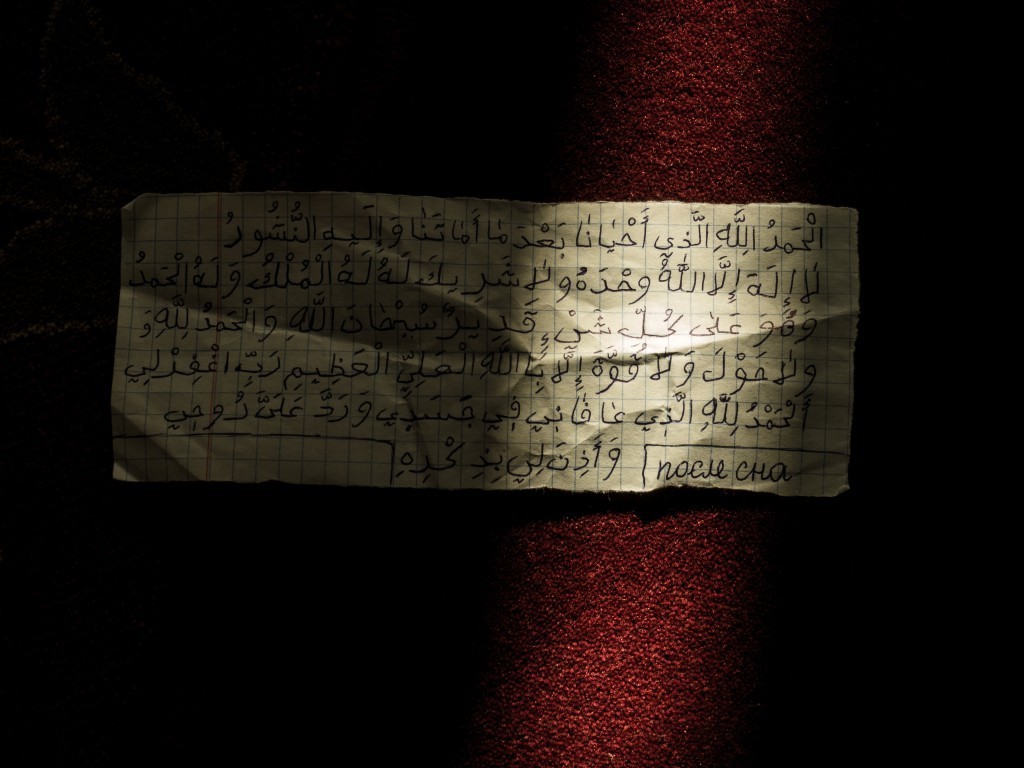 الْحَمْدُ اللَّهِ الَّذِي أَحْيَانَا بَعْدَ مَا أَمَاتَنَا وَإِلَيهِ النُّشُورُ
لَا إِلَهَ إِلَّا اللَّهُ وحْدَهُ ولَا شَرِيكَ لَهُ لَهُ الْمُلْكُ وَلَهُ الْحَمدُ
وَهُوَ عَلَى كُلِّ شَيْءٍ قَدِيرٌ سُبْحَانَ اللَّهِ وَالْحَمدُ لِلَّهِ وَ
ولَا حَوْلَ وَلَا قُوَّةَ إِلَّا بِاللَّهِ الْعَلِيِّ الْعَظِيمِ رَبِّ اغْفِرْلِي
أَلْحَمْدُ لِلَّهِ الَّذِي عَافَانِي فِي جَسَدِي وَرَدَّ عَلَيَّ رُوحِي
وَأَذِنَ لِي بِذِكْرِهِ
после сна